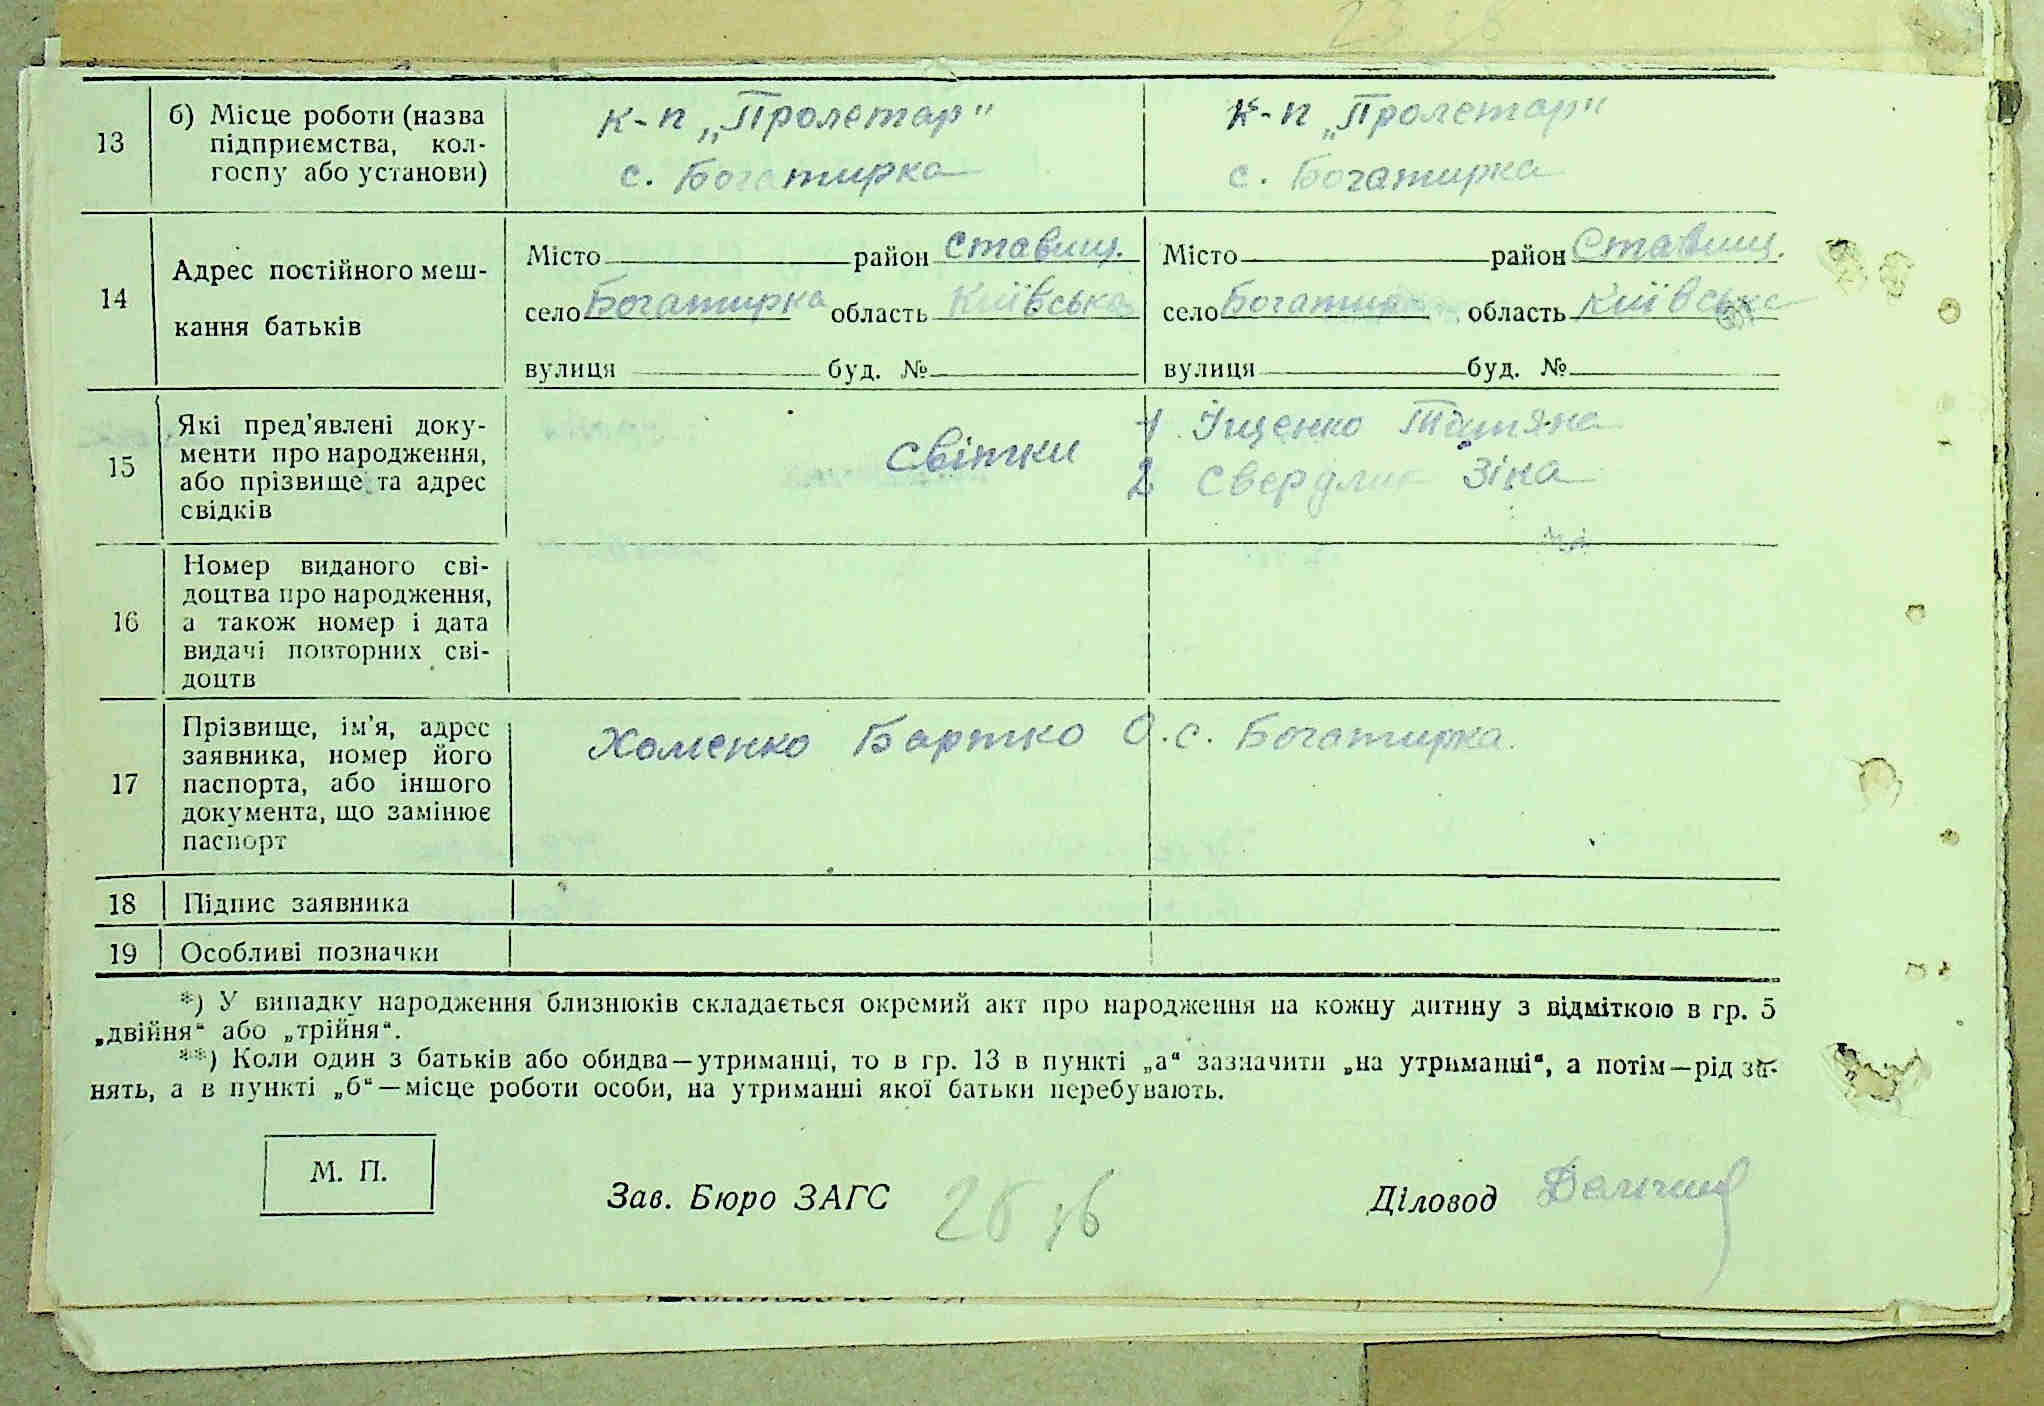 13
б) Місце роботи (назва
підприємства, кол-
госпу або установи)
к-п „Пролетар"
с. Богатирка
к-п „Пролетар"
с. Богатирка
14
Адрес постійного меш-
кання батьків
Місто район Ставищ.
село Богатирка область Київська
вулиця буд. №
Місто район Ставищ.
село Богатирка область Київська
вулиця буд. №
15
Які пред'явлені доку-
менти про народження,
або прізвище та адрес
свідків
Світки
1 Іщенко Татяна
2 Свердлик Зіна
16
Номер виданого сві-
доцтва про народження,
а також номер і дата
видачі повторних сві-
доцтв
17
Прізвище, ім'я, адрес
заявника, номер його
паспорта, або іншого
документа, що замінює
паспорт
Хоменко Бартко О. с. Богатирка.
18 Підпис заявника
19 Особливі позначки
*) У випадку народження близнюків складається окремий акт про народження на кожну дитину з відміткою в гр. 5
„двійня“ або „трійня“.
**) Коли один з батьків або обидва—утриманці, то в гр. 13 в пункті „а“ зазначити „на утриманні“, а потім—рід за-
нять, а в пункті „б“—місце роботи особи, на утриманні якої батьки перебувають.
М. П.
Зав. Бюро ЗАГС
Діловод